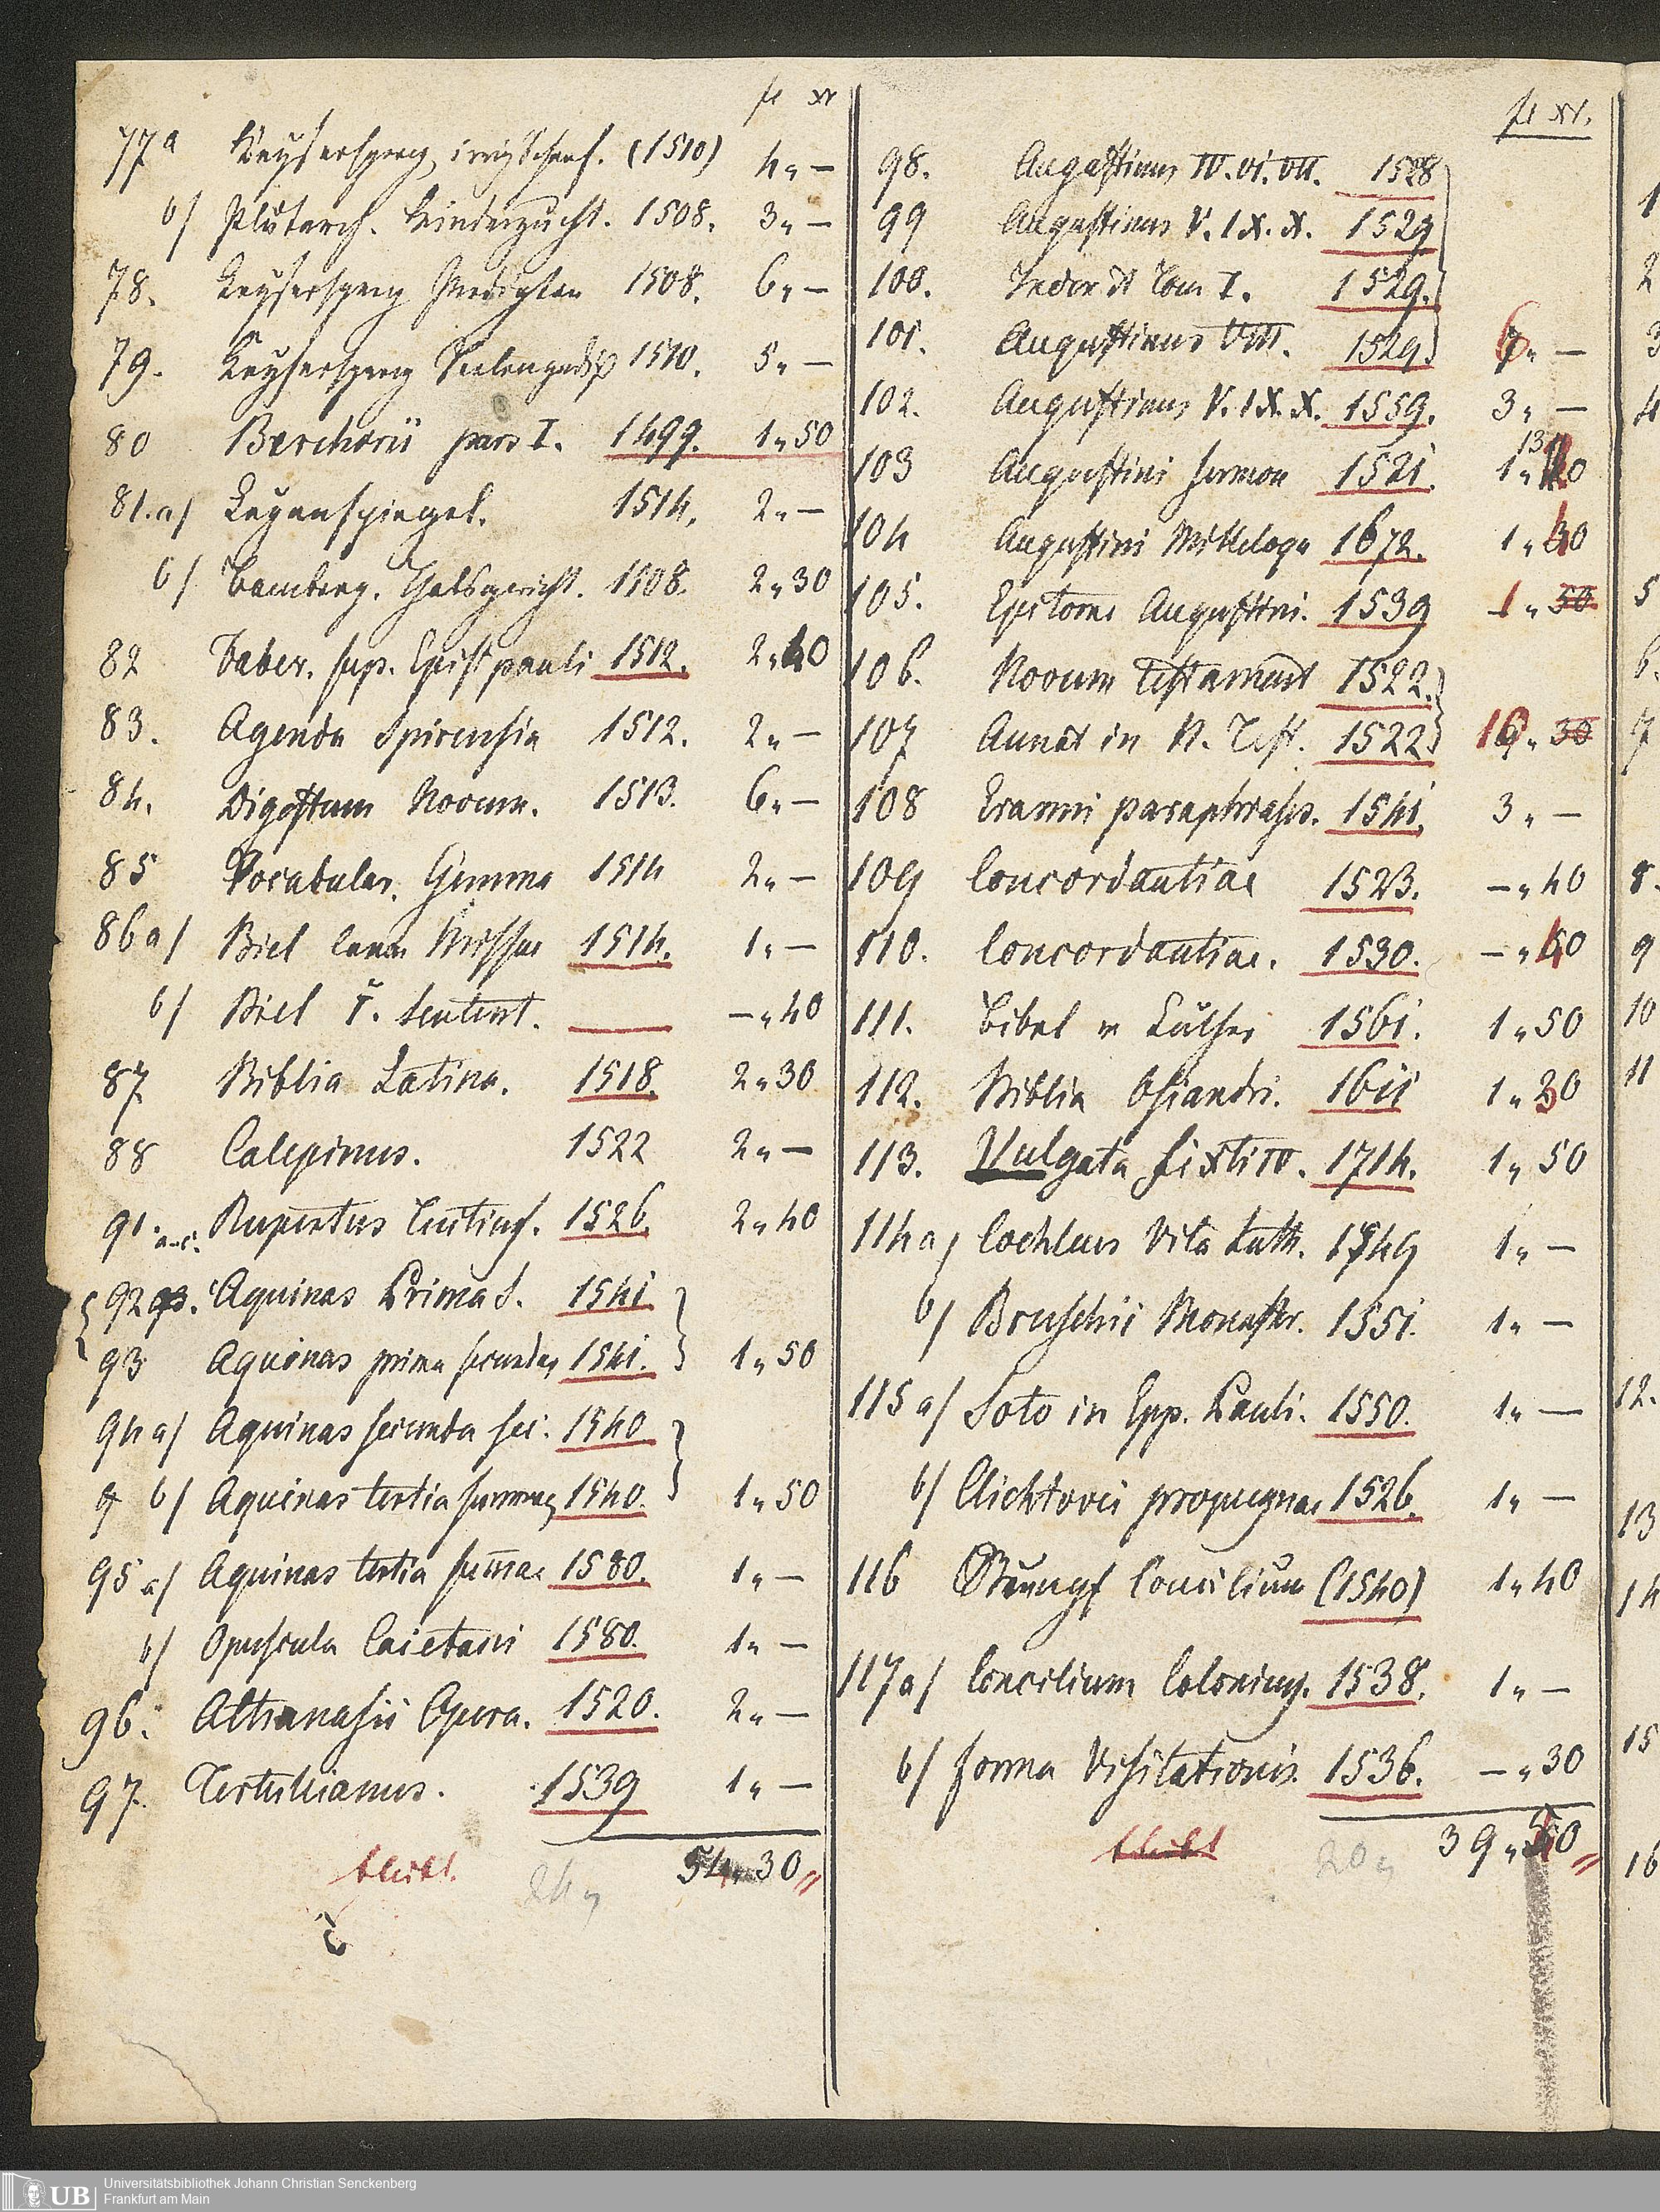 fl xr
77a Keysersperg, irrig Schaf. (1510) 4„ —
b/ Plutarch. Kinderzucht. 1508. 3„ —
78. Keysersperg Predigten 1508. 6„ —
79. Keysersperg Seelenparadiß 1510. 5„ —
80 Berchorii pars I. 1499. 1„50
81.a/ Layenspiegel. 1514. 2„ —
b/ Bamberg. Halsgericht. 1508. 2„30
82 Faber. sup. Epist pauli 1512. 2„40
83. Agenda Spirensia 1512. 2„ —
84. Digestum Novum. 1513. 6„ —
85 Vocabular. Gemma 1514 2„ —
86a/ Biel canon Missae 1514. 1„ —
b/ Biel I. Sentent. — —„40
87 Biblia Latina. 1518. 2„30
88 Calepinus. 1522 2„ —
91. a-c. Rupertus Tuitiens. 1526. 2„40
92 Aquinas Prima S. 1541
93 Aquinas prima secundae 1541. 1„50
94a/ Aquinas secunda sec. 1540
b/ Aquinas tertia summae 1540. 1„50
95a/ Aquinas tertia sum̄ae 1580. 1„ —
b/ Opuscula Caietani 1580. 1„ —
96. Athanasii Opera. 1520. 2„ —
97. Tertullianus. 1539 1„ —
bleibt. 24„ 54„30„
fl xr.
98. Augustinus IV. VI. VII. 1528
99 Augustinus V. IX. X. 1529
100. Index et Tom I. 1529.
101. Augustinus VIII. 1529. 6„ —
102. Augustinus V. IX. X. 1559. 3„ —
103 Augustini Sermon 1521. 1„
104 Augustini Milleloqu 1672. 1„40
105. Epitome Augustini. 1539 1„ 30
106. Novum Testament 1522.
107 Annot in N. Test. 1522. 16„ 30
108 Erasmi paraphrases. 1541. 3„ —
109 Concordantiae 1523. —„40
110. Concordantiae. 1530. —„40
111. Bibel v Luther 1561. 1„50
112. Biblia Osiandri. 1611 1„30
113. Vulgata Sixti IV. 1714. 1„50
114a/ Cochleus Vita Luth. 1549 1„ —
b/ Bruschii Monaster. 1551. 1„ —
115a/ Soto in Epp. Pauli. 1550. 1„ —
b/ Clichtovei propugnac 1526. 1„ —
116 Stumpf Concilium (1540) 1„40
117a/ Concilium Coloniens. 1538. 1„ —
b/ Forma Visitationis. 1536. —„30
bleibt 20„ 39„
1
2
3
4
5
6.
7
8.
9
10
11
12.
13
14
15
16
UB Universitätsbibliothek Johann Christian Senckenberg
Frankfurt am Main